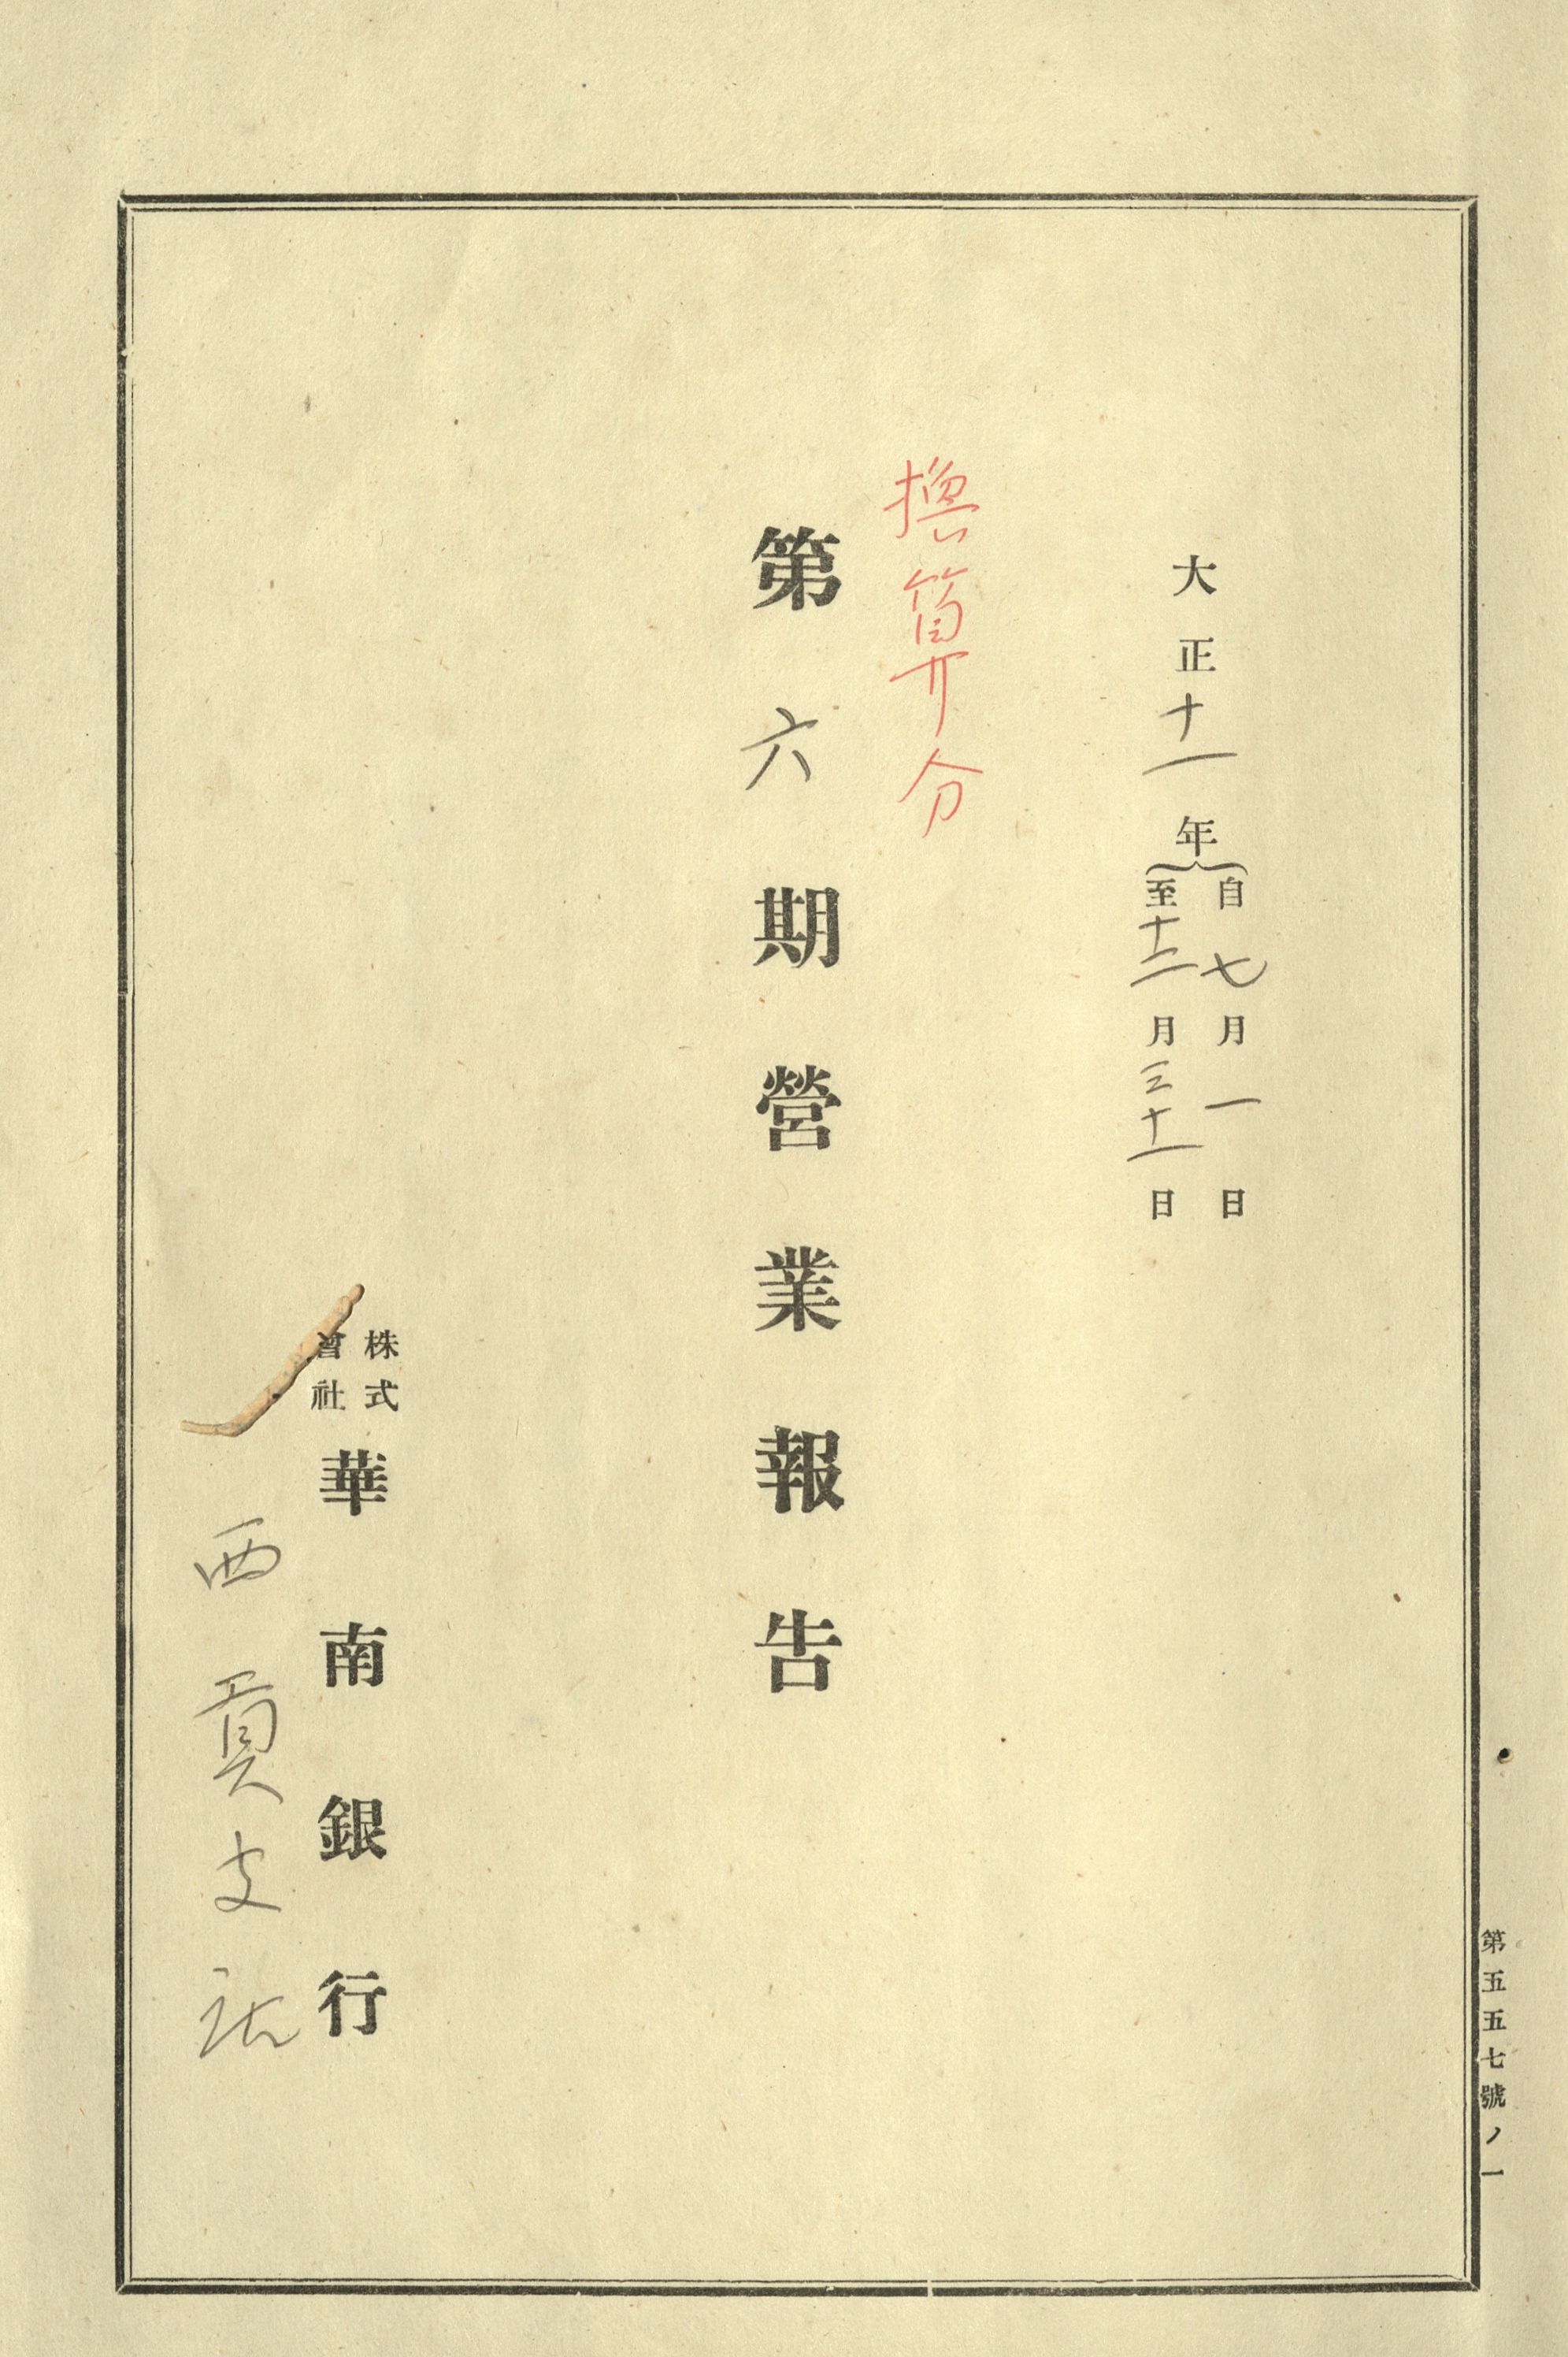 第五五七號ノ一
大正十一年
自七月一日
至十二月三十一日
換算分
第六期營業報告
株式
會社
華南銀行
西貢支店